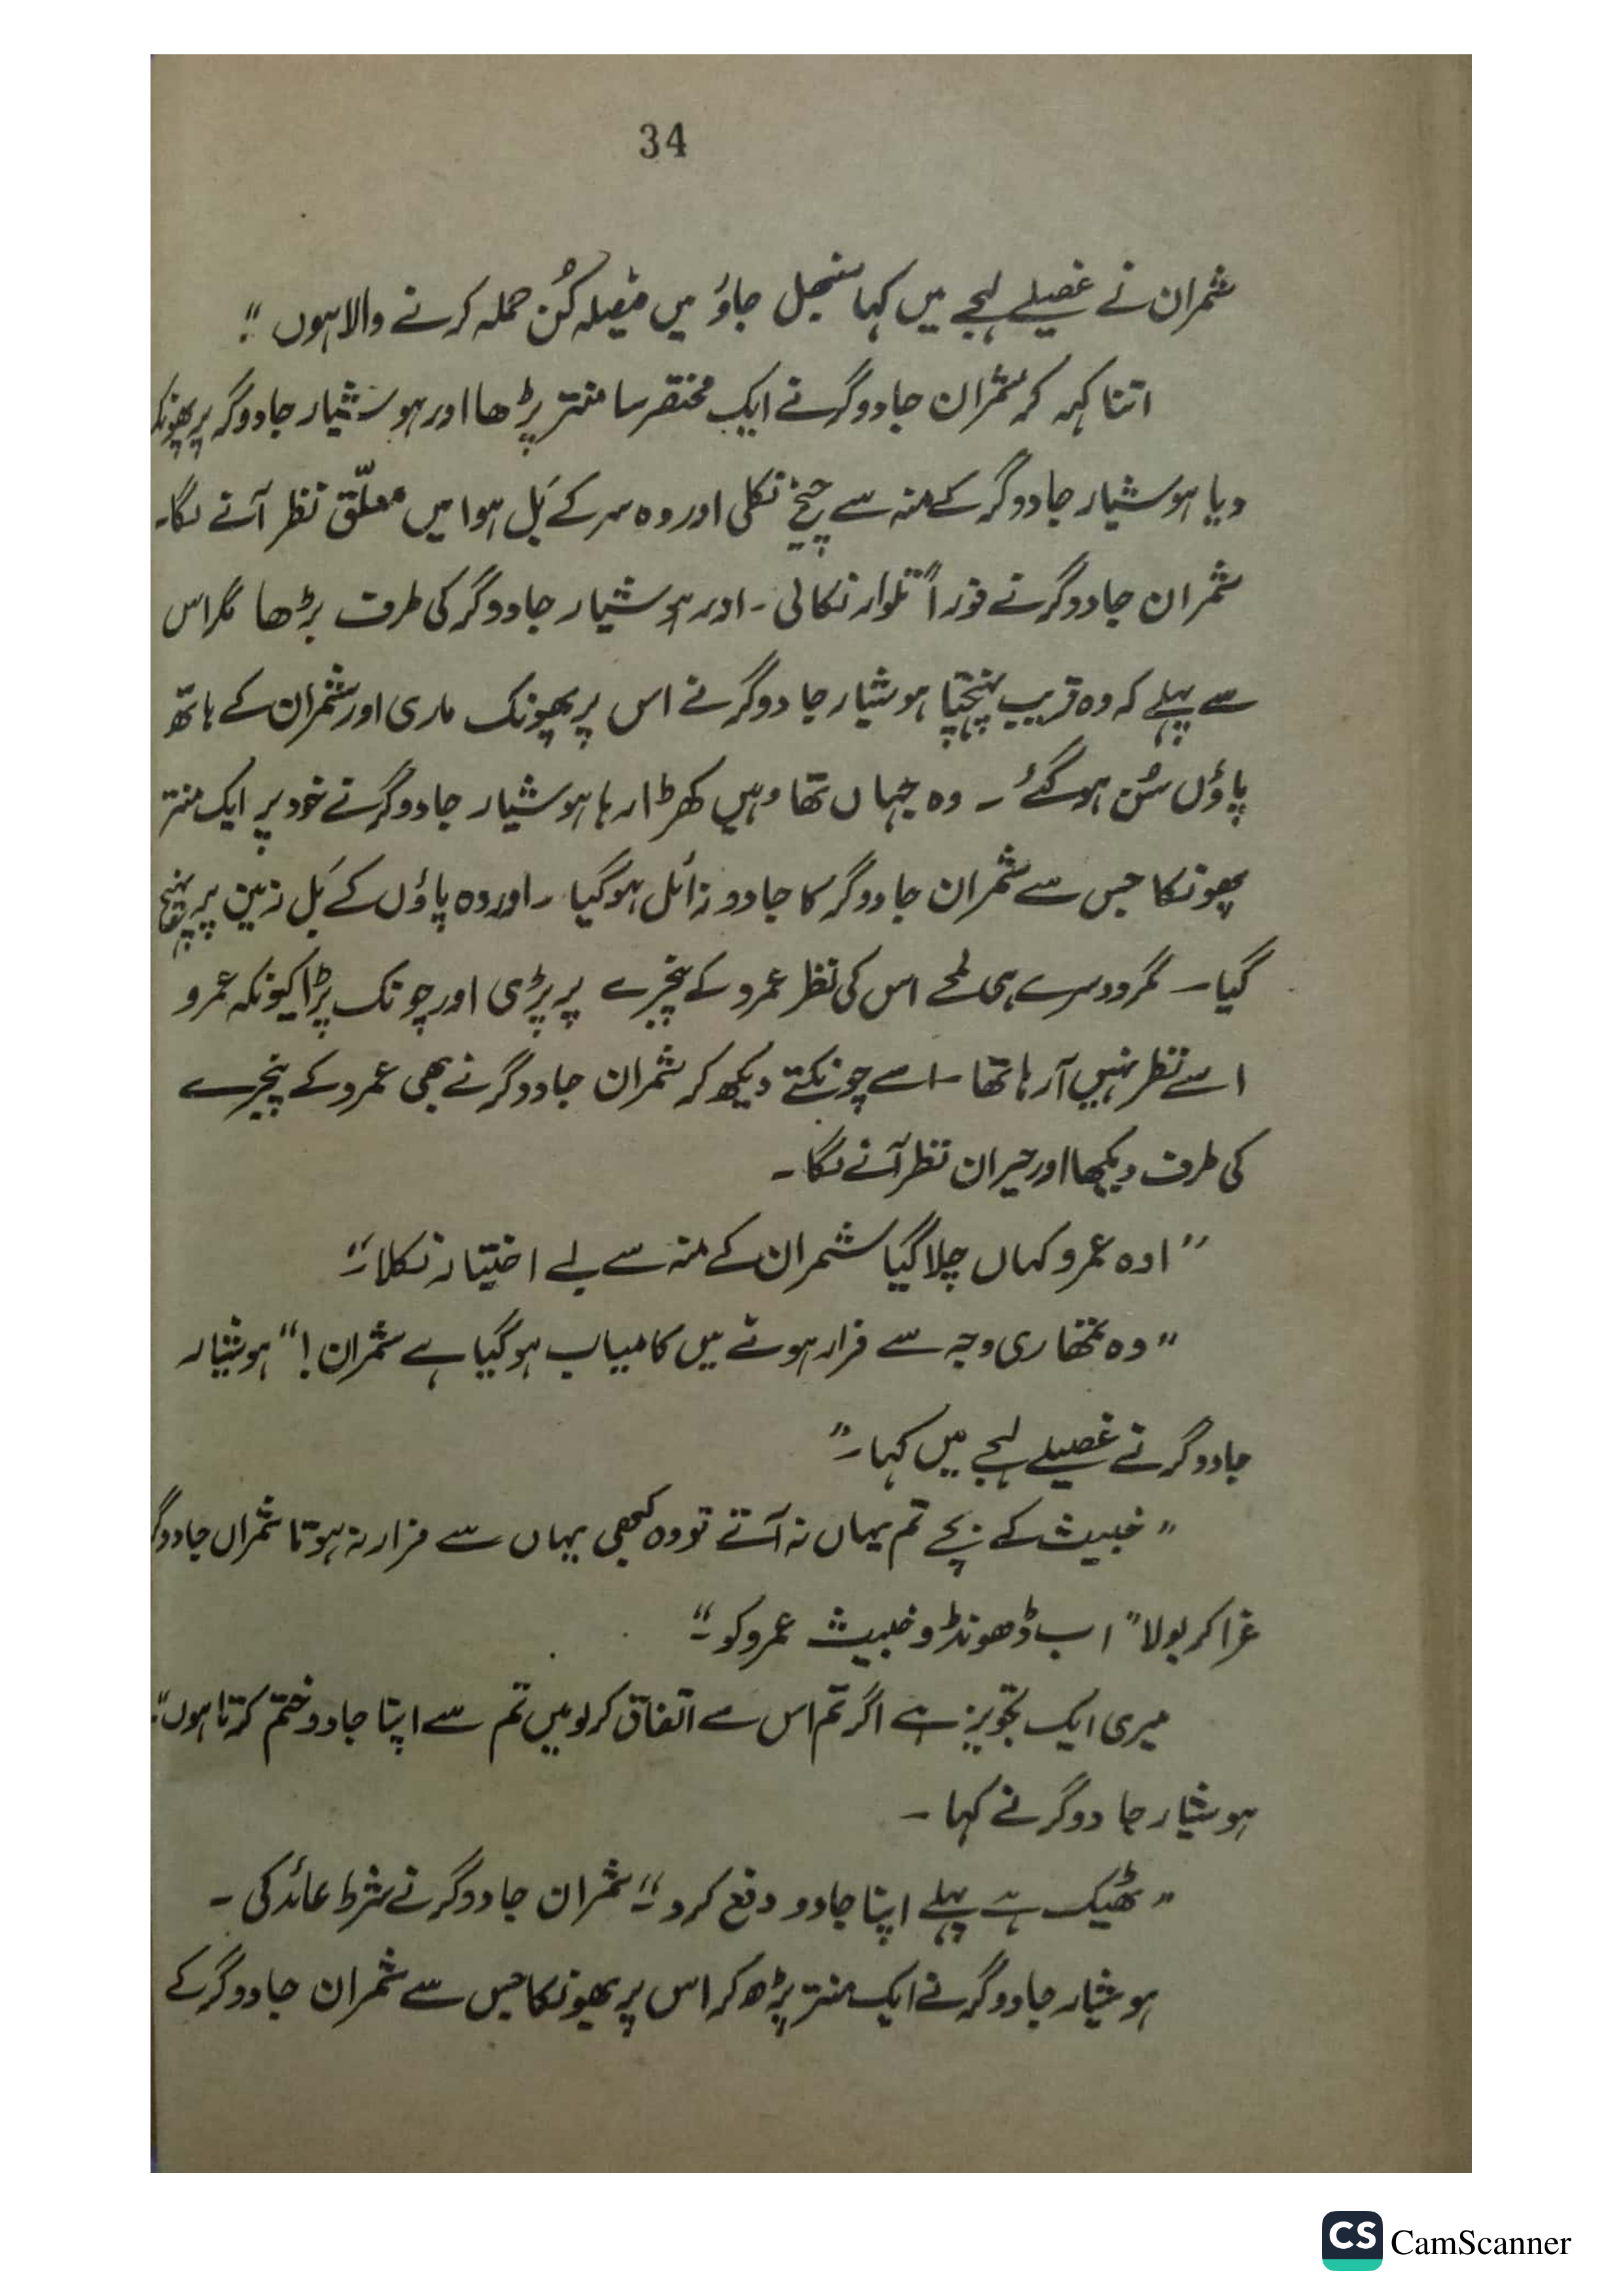 34
شمران نے غصیلے لہجے میں کہا سنبھل جاؤ میں فیصلہ کُن حملہ کرنے والا ہوں ۔"
اتنا کہہ کر شمران جادوگر نے ایک مختصر سا منتر پڑھا اور ہوشیار جادوگر پر پھونک
دیا ہوشیار جادوگر کے منہ سے چیخ نکلی اور وہ سر کے بَل ہوا میں معلّق نظر آنے لگا۔
شمران جادوگر نے فوراً تلوار نکالی ۔ اور ہوشیار جادوگر کی طرف بڑھا مگر اس
سے پہلے کہ وہ قریب پہنچتا ہوشیار جادوگر نے اس پر پھونک ماری اور شمران کے ہاتھ
پاؤں سُن ہو گئے ۔ وہ جہاں تھا وہیں کھڑا رہا ہوشیار جادوگر نے خود پر ایک منتر
پھونکا جس سے شمران جادوگر کا جادو زائل ہو گیا ۔ اور وہ پاؤں کے بَل زمین پر پہنچ
گیا ۔ مگر دوسرے ہی لمحے اس کی نظر عمرو کے پنجرے پر پڑی اور چونک پڑا کیونکہ عمرو
اسے نظر نہیں آ رہا تھا ۔ اسے چونکتے دیکھ کر شمران جادوگر نے بھی عمرو کے پنجرے
کی طرف دیکھا اور حیران نظر آنے لگا ۔
"اوہ عمرو کہاں چلا گیا شمران کے منہ سے بے اختیار نکلا ۔"
"وہ تمھاری وجہ سے فرار ہونے میں کامیاب ہو گیا ہے شمران !" ہوشیار
جادوگر نے غصیلے لہجے میں کہا ۔"
"خبیث کے بچے تم یہاں نہ آتے تو وہ کبھی یہاں سے فرار نہ ہوتا شمران جادوگر
غرا کر بولا" اب ڈھونڈو خبیث عمرو کو ۔"
میری ایک تجویز ہے اگر تم اس سے اتفاق کر لو میں تم سے اپنا جادو ختم کرتا ہوں"
ہوشیار جادوگر نے کہا ۔
"ٹھیک ہے پہلے اپنا جادو دفع کرو ۔" شمران جادوگر نے شرط عائد کی ۔
ہوشیار جادوگر نے ایک منتر پڑھ کر اس پر پھونکا جس سے شمران جادوگر کے
CS CamScanner